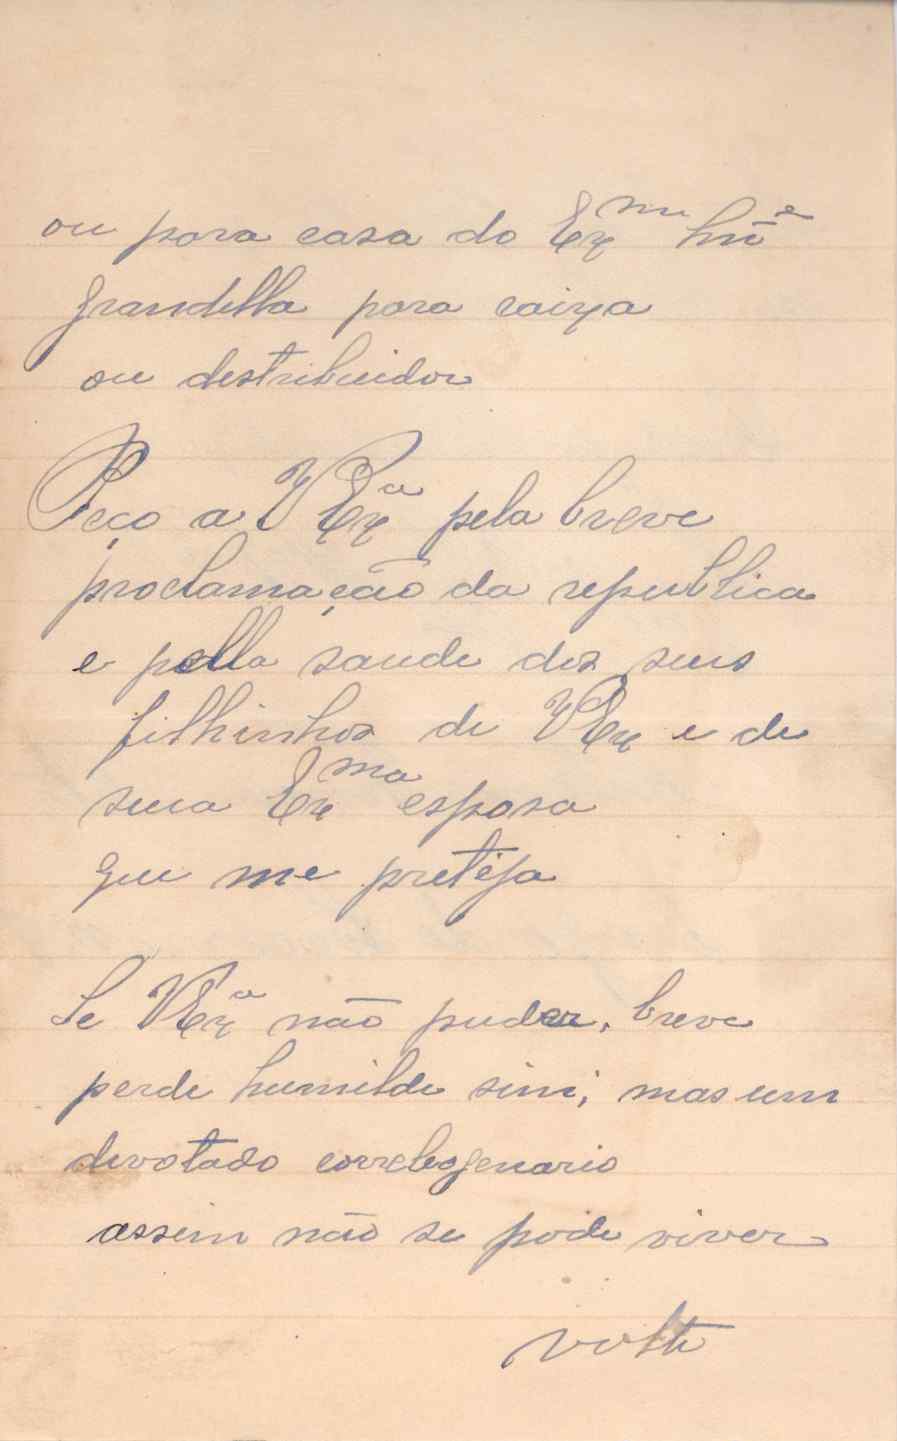 ou para casa do Exmo
Grandella para caixa
ou destribuidor
Peço a V Exa pela breve
proclamação da republica
e pella saude dos seus
filhinhos de V Ex e de
sua Exma esposa
que me preteja
Se V Exa não puder, breve
perde humilde sim, mas um
divotado correlegenario
assim não se pode viver
volti